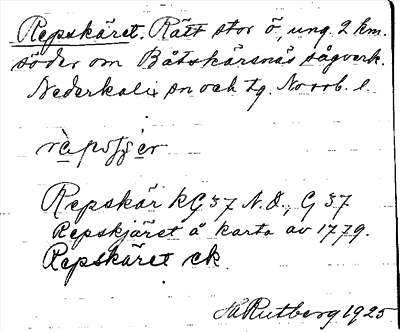 Repskäret. Rätt stor ö, ung. 2 km.
söder om Båtskärsnäs sågverk.
Nederkalix sn och tg. Norrb. l.
Repskär KG 37 N.O., G 37
Repskjäret å karta av 1779.
Repskäret ek.
H Rutberg 1925